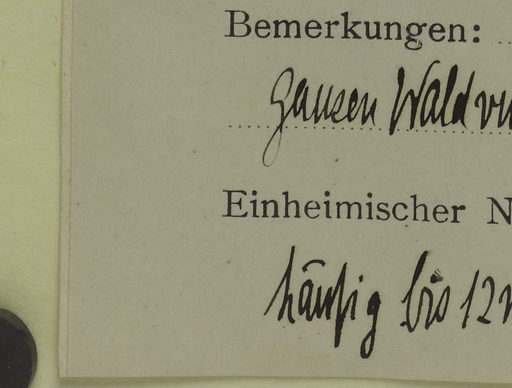 Bemerkungen:
ganzen Wald
Einheimischer N
häufig bis 12